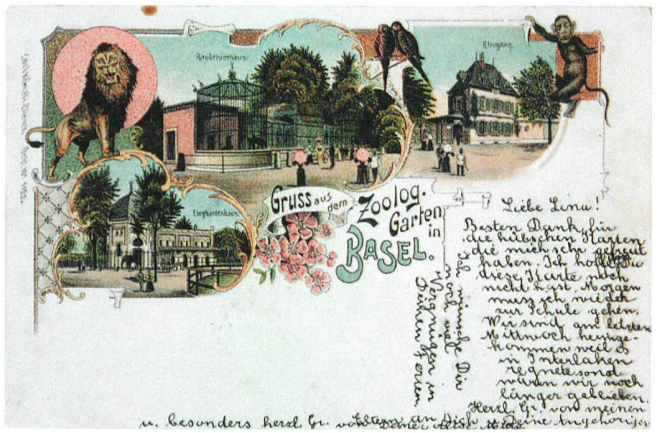 Raubtierhaus.
Eingang.
Elephantenhaus.
Gruss aus dem
Zoolog.
Garten
in
BASEL.
Liebe Lina!
Besten Dank für
die hübschen Karten
die mich sehr gefreut
haben. Ich hoffe Du
diese Karte noch
nicht hast. Morgen
muss ich wieder
zur Schule gehen.
Wir sind am letzten
Mittwoch heimge-
kommen weil es
in Interlaken
regnete sonst
wären wir noch
länger geblieben.
Herzl. Gr. von meinen
Ich wünsche Dir
noch viel
Vergnügen in
Deinen Ferien
u. besonders herzl. Gr. von Deiner
Eltern an Dich u. Deine Angehörigen